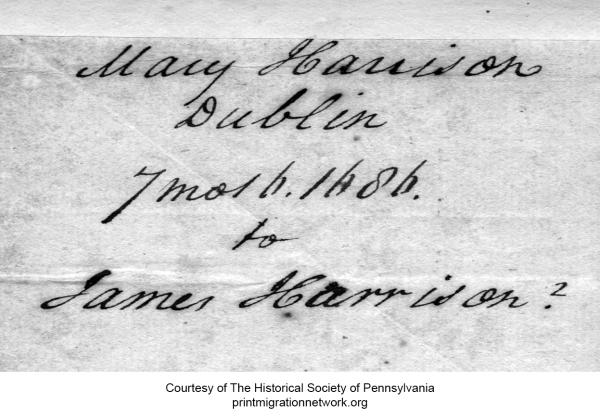 Mary Harrison
Dublin
7 mos 6. 1686.
to
James Harrison?
Courtesy of The Historical Society of Pennsylvania
printmigrationnetwork.org